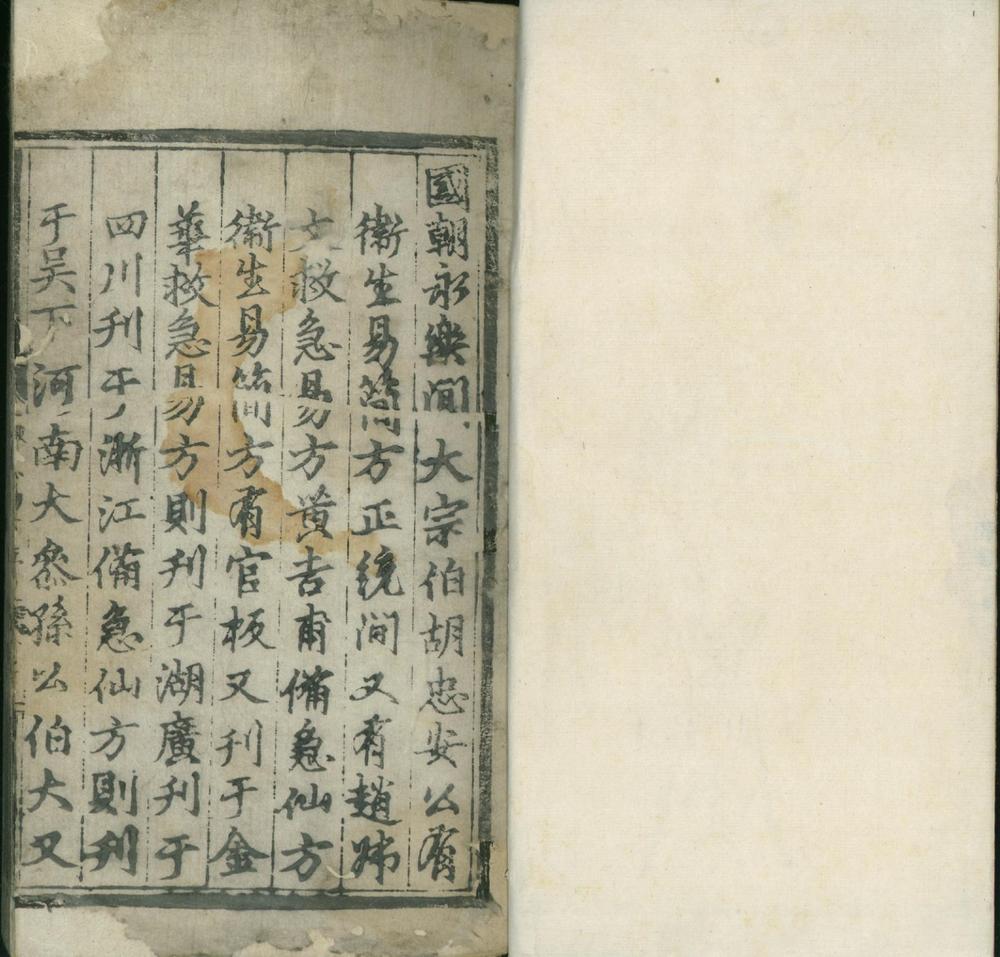 國朝永樂間大宗伯胡忠安公有
衛生易簡方正統間又有趙叔
文救急易方黃吉甫備急仙方
衛生易簡方有官板又刊于金
華救急易方則刊于湖廣刊于
四川刊于浙江備急仙方則刊
于吳下河南大叅孫公伯大又